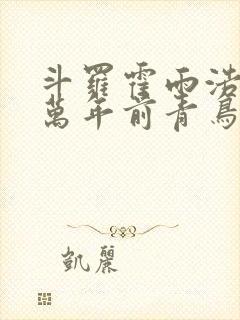 斗羅霍雨浩
萬年前青鳥
凱麗